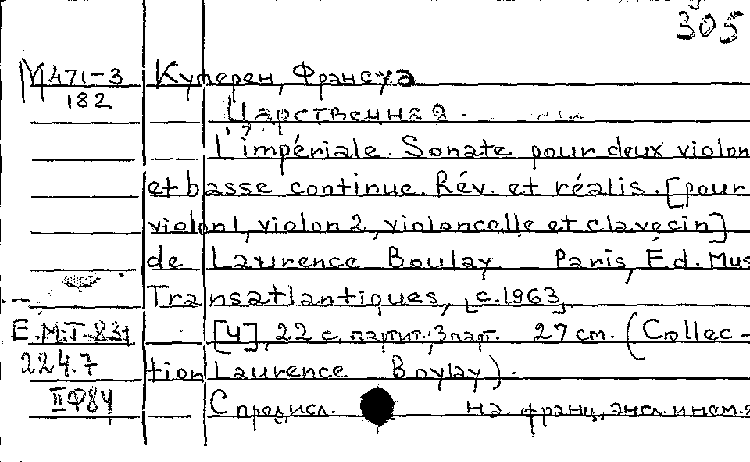 305
М471-3 Куперен, Франсуа
182 Царственная.
L'impériale. Sonate pour deux violon
et basse continue. Rév. et réalis. [pour
violon1, violon 2, violoncelle et clavecin]
de Laurence Boulay Paris, Éd. Mus
Transatlantiques, [c.1963,
E.M.T-831 [4], 22 с. партит., 3 парт. 27 cm. (Collec-
224.7 tion Laurence Boylay).
IIФ84 С предисл. на франц., англ. и нем. я